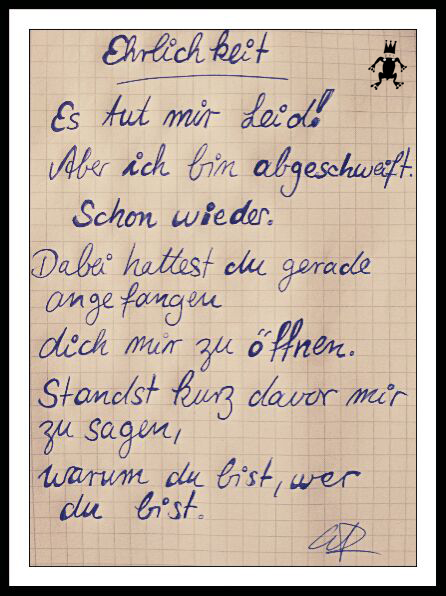 Ehrlichkeit
Es tut mir Leid!
Aber ich bin abgeschweift.
Schon wieder.
Dabei hattest du gerade
angefangen
dich mir zu öffnen.
Standst kurz davor mir
zu sagen,
warum du bist, wer
du bist.